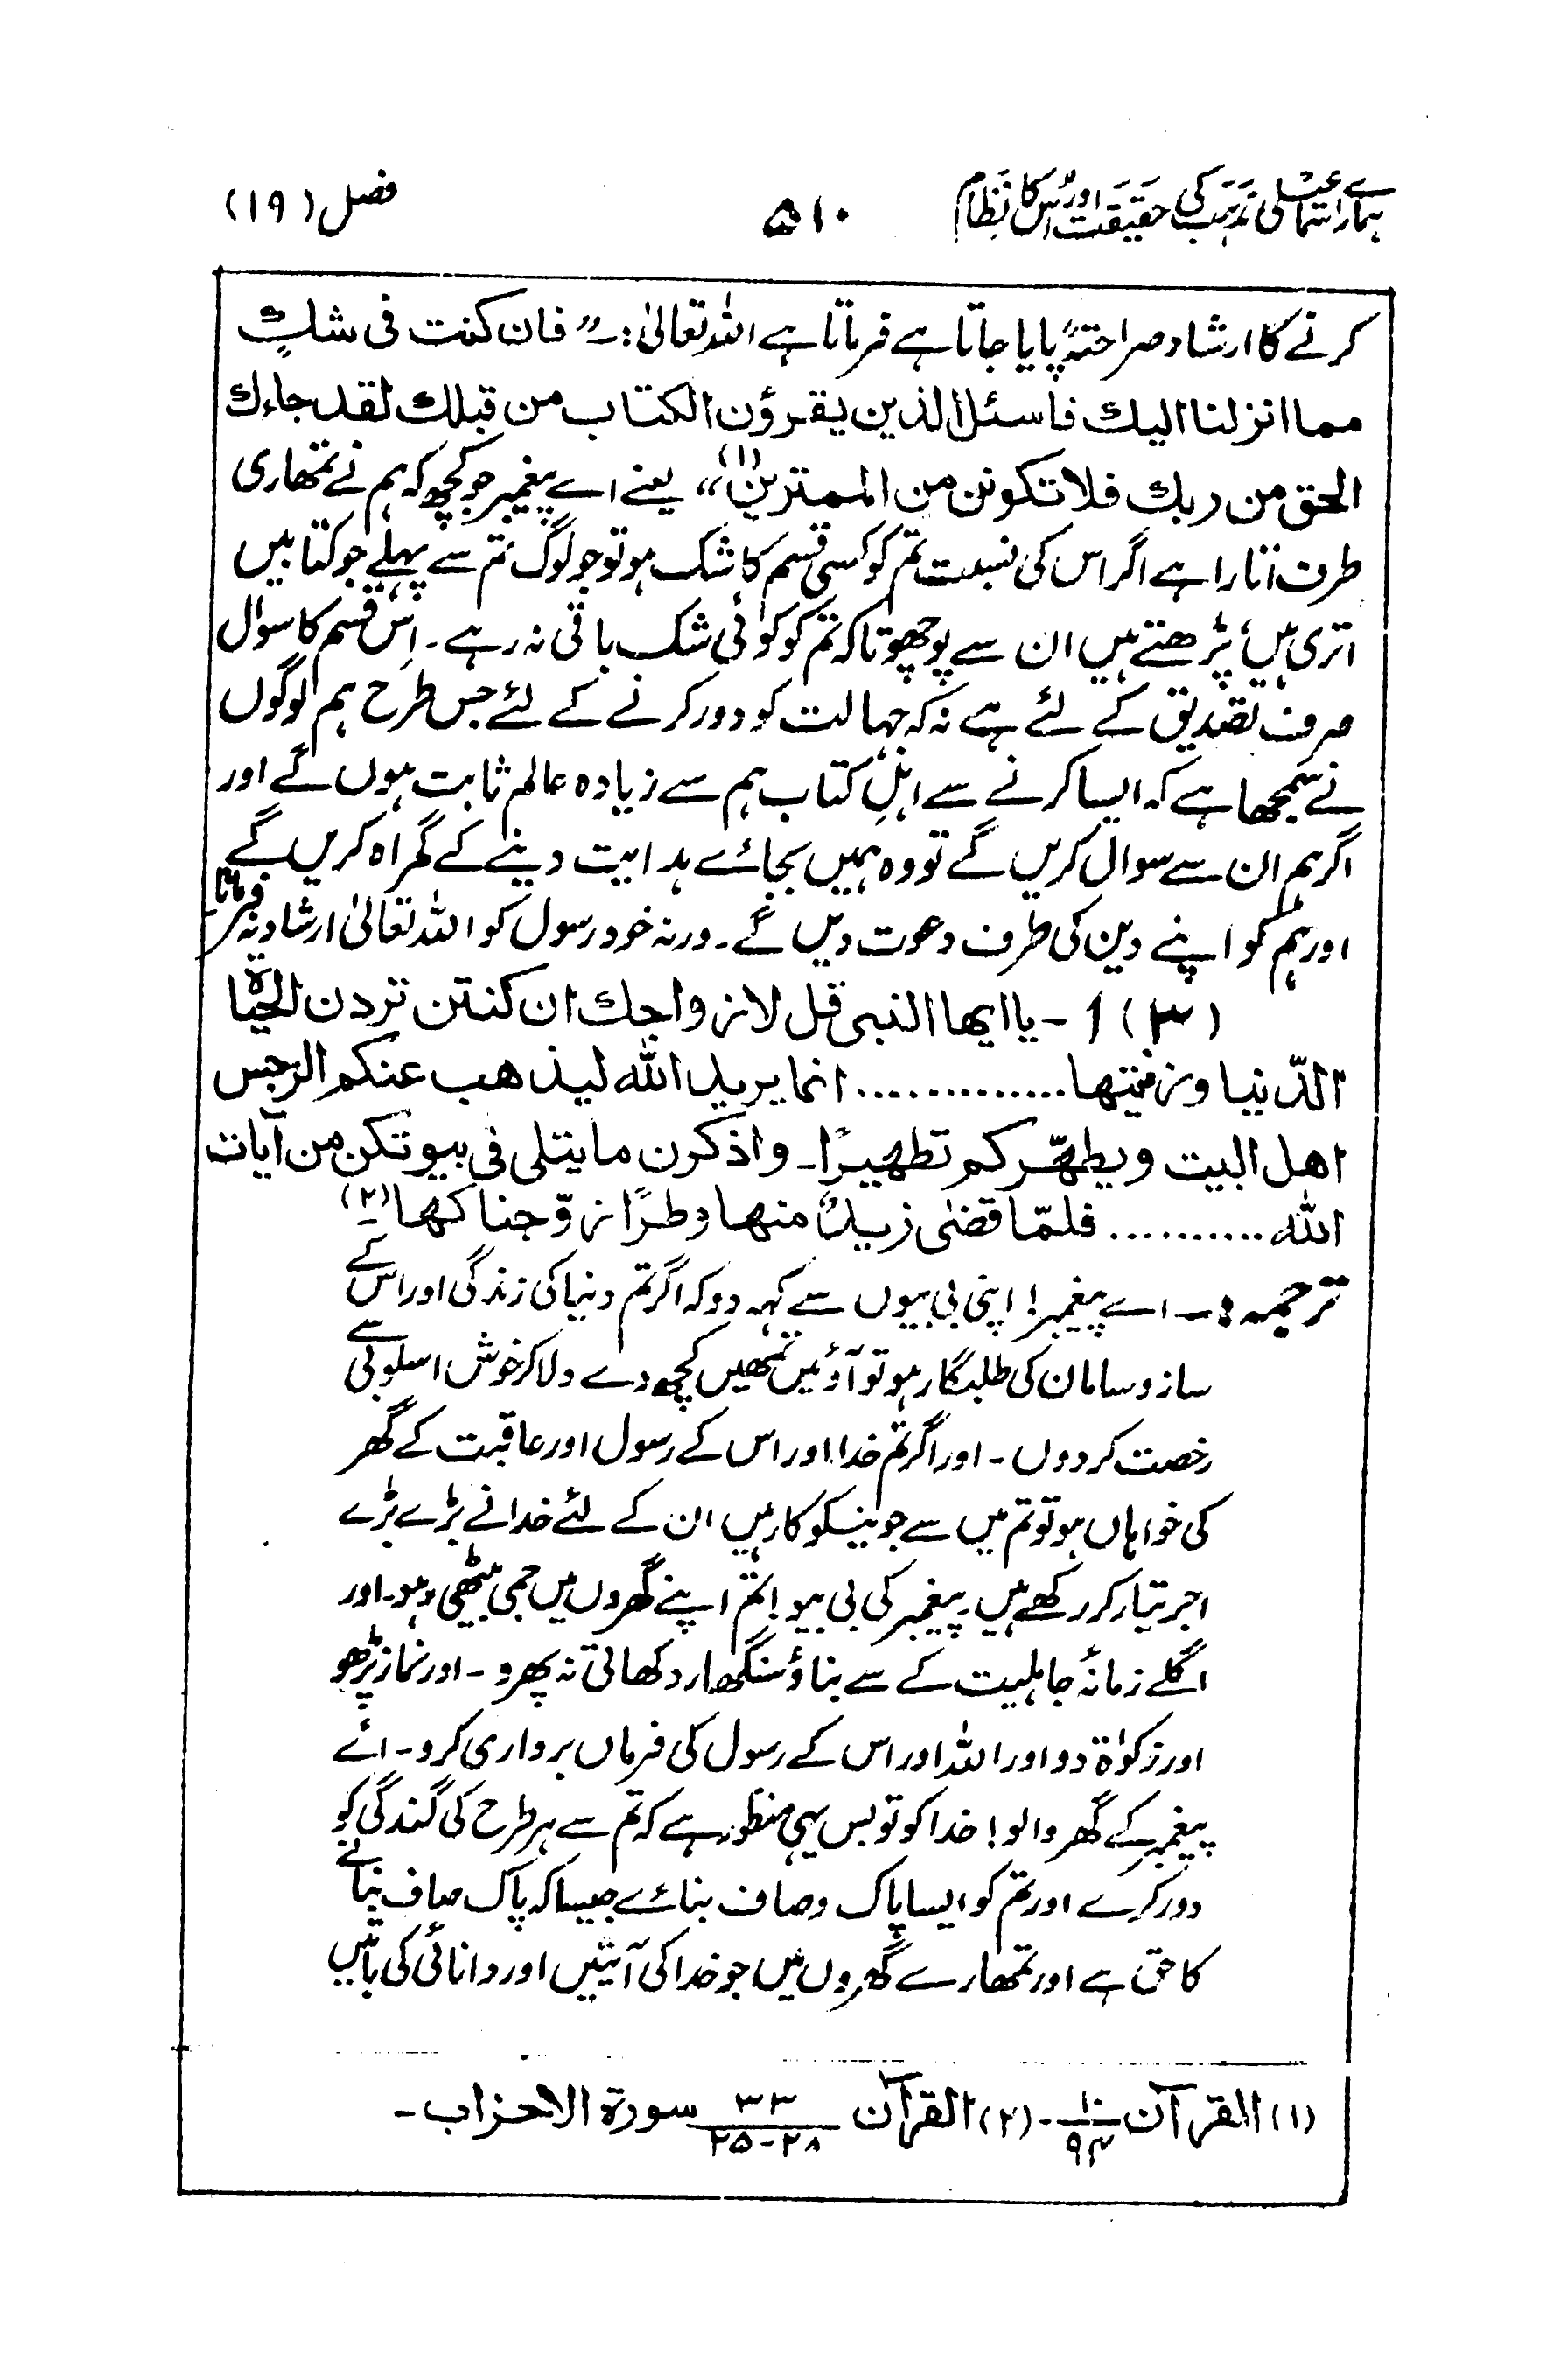 ہمارے اسماعیلی مذہب کی حقیقت اور اس کا نظام ۵۱۰ فصل (۱۹)
کرنے کا ارشاد صراحتہً پایا جاتا ہے فرماتا ہے اللہ تعالیٰ :۔ ”فان کنت فی شکٍ
مما انزلنا الیک فاسئل الذین یقرؤن الکتاب من قبلک لقد جاءک
الحق من ربک فلا تکونن من الممترین(۱)“ یعنے اے پیغمبر جو کچھ کہ ہم نے تمھاری
طرف اتارا ہے اگر اس کی نسبت تم کو کسی قسم کا شک ہو تو جو لوگ تم سے پہلے جو کتابیں
اتری ہیں پڑھتے ہیں ان سے پوچھو تاکہ تم کو کوئی شک باقی نہ رہے ۔ اِس قسم کا سوال
صرف تصدیق کے لئے ہے نہ کہ جہالت کو دور کرنے کے لئے جس طرح ہم لوگوں
نے سمجھا ہے کہ ایسا کرنے سے اہلِ کتاب ہم سے زیادہ عالم ثابت ہوں گے اور
اگر ہم ان سے سوال کریں گے تو وہ ہمیں بجائے ہدایت دینے کے گمراہ کریں گے
اور ہم کو اپنے دین کی طرف دعوت دیں گے ۔ ورنہ خود رسول کو اللہ تعالیٰ ارشاد نہ فرماتا۔
(۳) 1 - یا ایھا النبی قل لازواجک ان کنتن تردن الحیٰوۃ
الدّنیا وزینتھا .............. انما یرید اللہ لیذھب عنکم الرجس
اھل البیت ویطھّرکم تطھیرًا۔ واذکرن ما یتلی فی بیوتکن من آیات
اللہ ........... فلمّا قضیٰ زیدٌ منھا وطرًا زوّجناکھا(۲)
ترجمہ :۔ اے پیغمبر! اپنی بی بیوں سے کہہ دو کہ اگر تم دنیا کی زندگی اور اس کے
ساز و سامان کی طلبگار ہو تو آؤ میں تمھیں کچھ دے دلا کر خوش اسلوبی سے
رخصت کر دوں ۔ اور اگر تم خدا اور اس کے رسول اور عاقبت کے گھر
کی خواہاں ہو تو تم میں سے جو نیکوکار ہیں ان کے لئے خدا نے بڑے بڑے
اجر تیار کر رکھے ہیں۔ پیغمبر کی بی بیو! تم اپنے گھروں میں جمی بیٹھی رہو۔ اور
اگلے زمانۂ جاہلیت کے سے بناؤ سنگھار دکھاتی نہ پھرو ۔ اور نماز پڑھو
اور زکوٰۃ دو اور اللہ اور اس کے رسول کی فرماں برداری کرو ۔ اے
پیغمبر کے گھر والو! خدا کو تو بس یہی منظور ہے کہ تم سے ہر طرح کی گندگی کو
دور کرے اور تم کو ایسا پاک و صاف بنائے جیسا کہ پاک صاف بنانے
کا حق ہے اور تمھارے گھروں میں جو خدا کی آیتیں اور دانائی کی باتیں
(۱) القرآن ۱۰/۹۴ ۔ (۲) القرآن ۳۳/۲۵-۲۸ سورۃ الاحزاب ۔